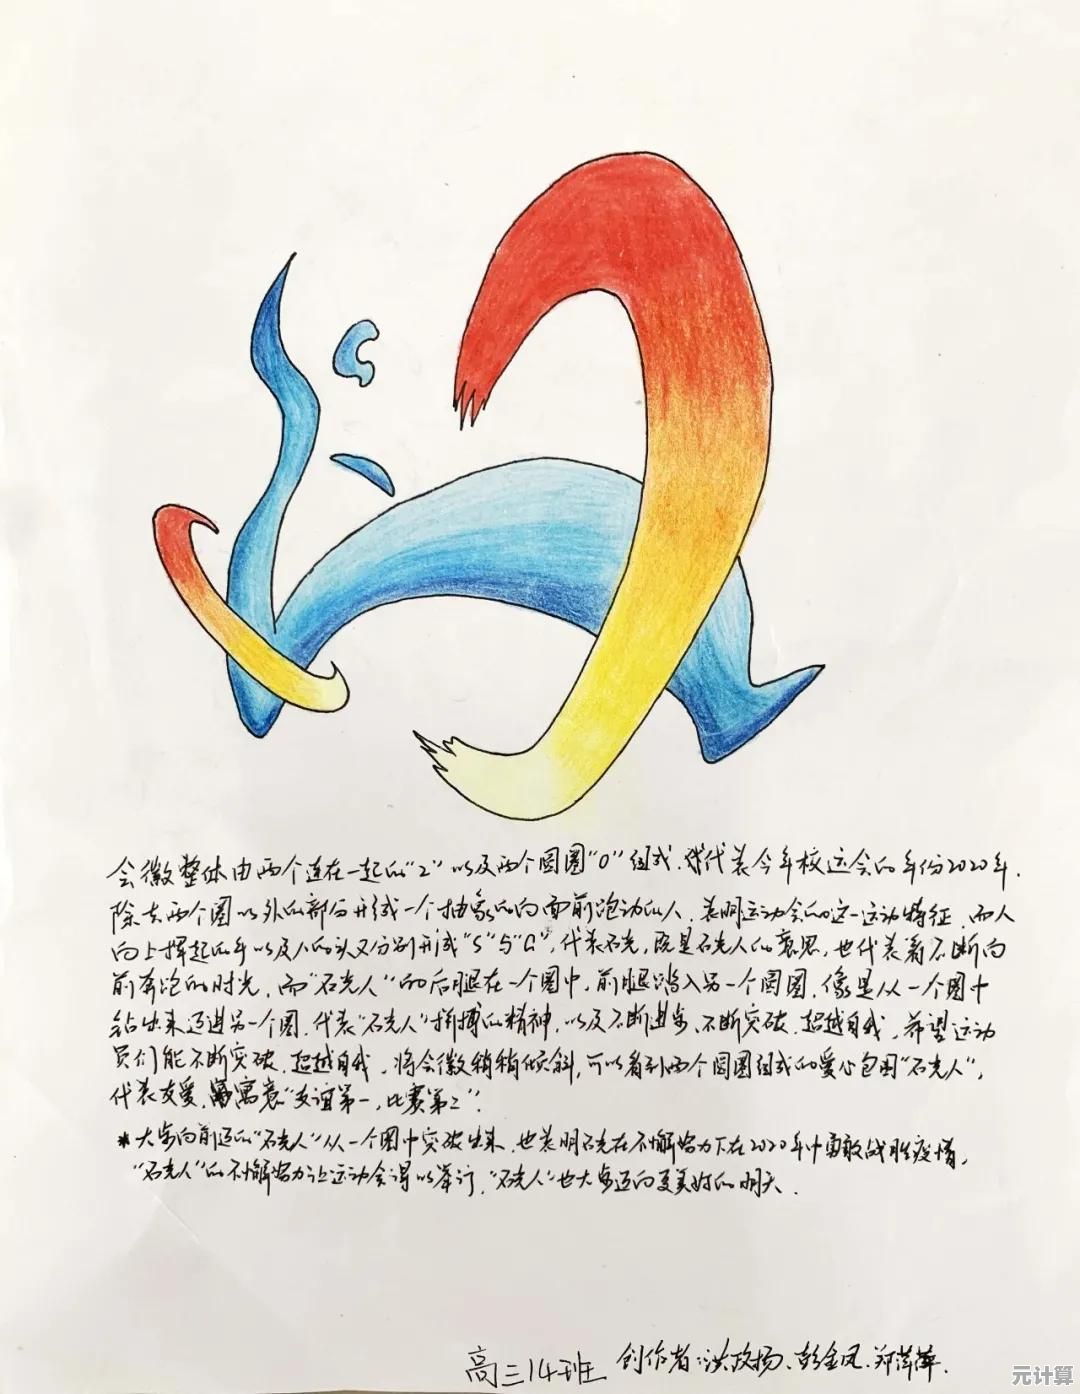 会徽整体由两个连在一起的"2"以及两个圆圈"0"组成.代表今年校运会的年份2020年.
除去两个圈以外的部分形成一个抽象的向前跑动的人.表明运动会的这一运动特征.而人
向上挥起的手以及人的头又分别形成"S""G",代表石光,既是石光人的意思,也代表着不断向
前奔跑的时光.而"石光人"的后腿在一个圈中,前腿踏入另一个圆圈.像是从一个圈中
钻出来迈进另一个圈.代表"石光人"拼搏的精神,以及不断进步、不断突破、超越自我.希望运动
员们能不断突破.超越自我.将会徽稍稍倾斜,可以看到两个圆圈组成的爱心包围"石光人",
代表友爱.寓意"友谊第一,比赛第二".
*大步向前迈的"石光人"从一个圈中突破出来.也表明石光在不懈努力下在2020年中勇敢战胜疫情,
"石光人"的不懈努力让运动会得以举行."石光人"也大步迈向更美好的明天.
高三14班 创作者:洪政扬、彭金凤、郑萍萍.
元计算